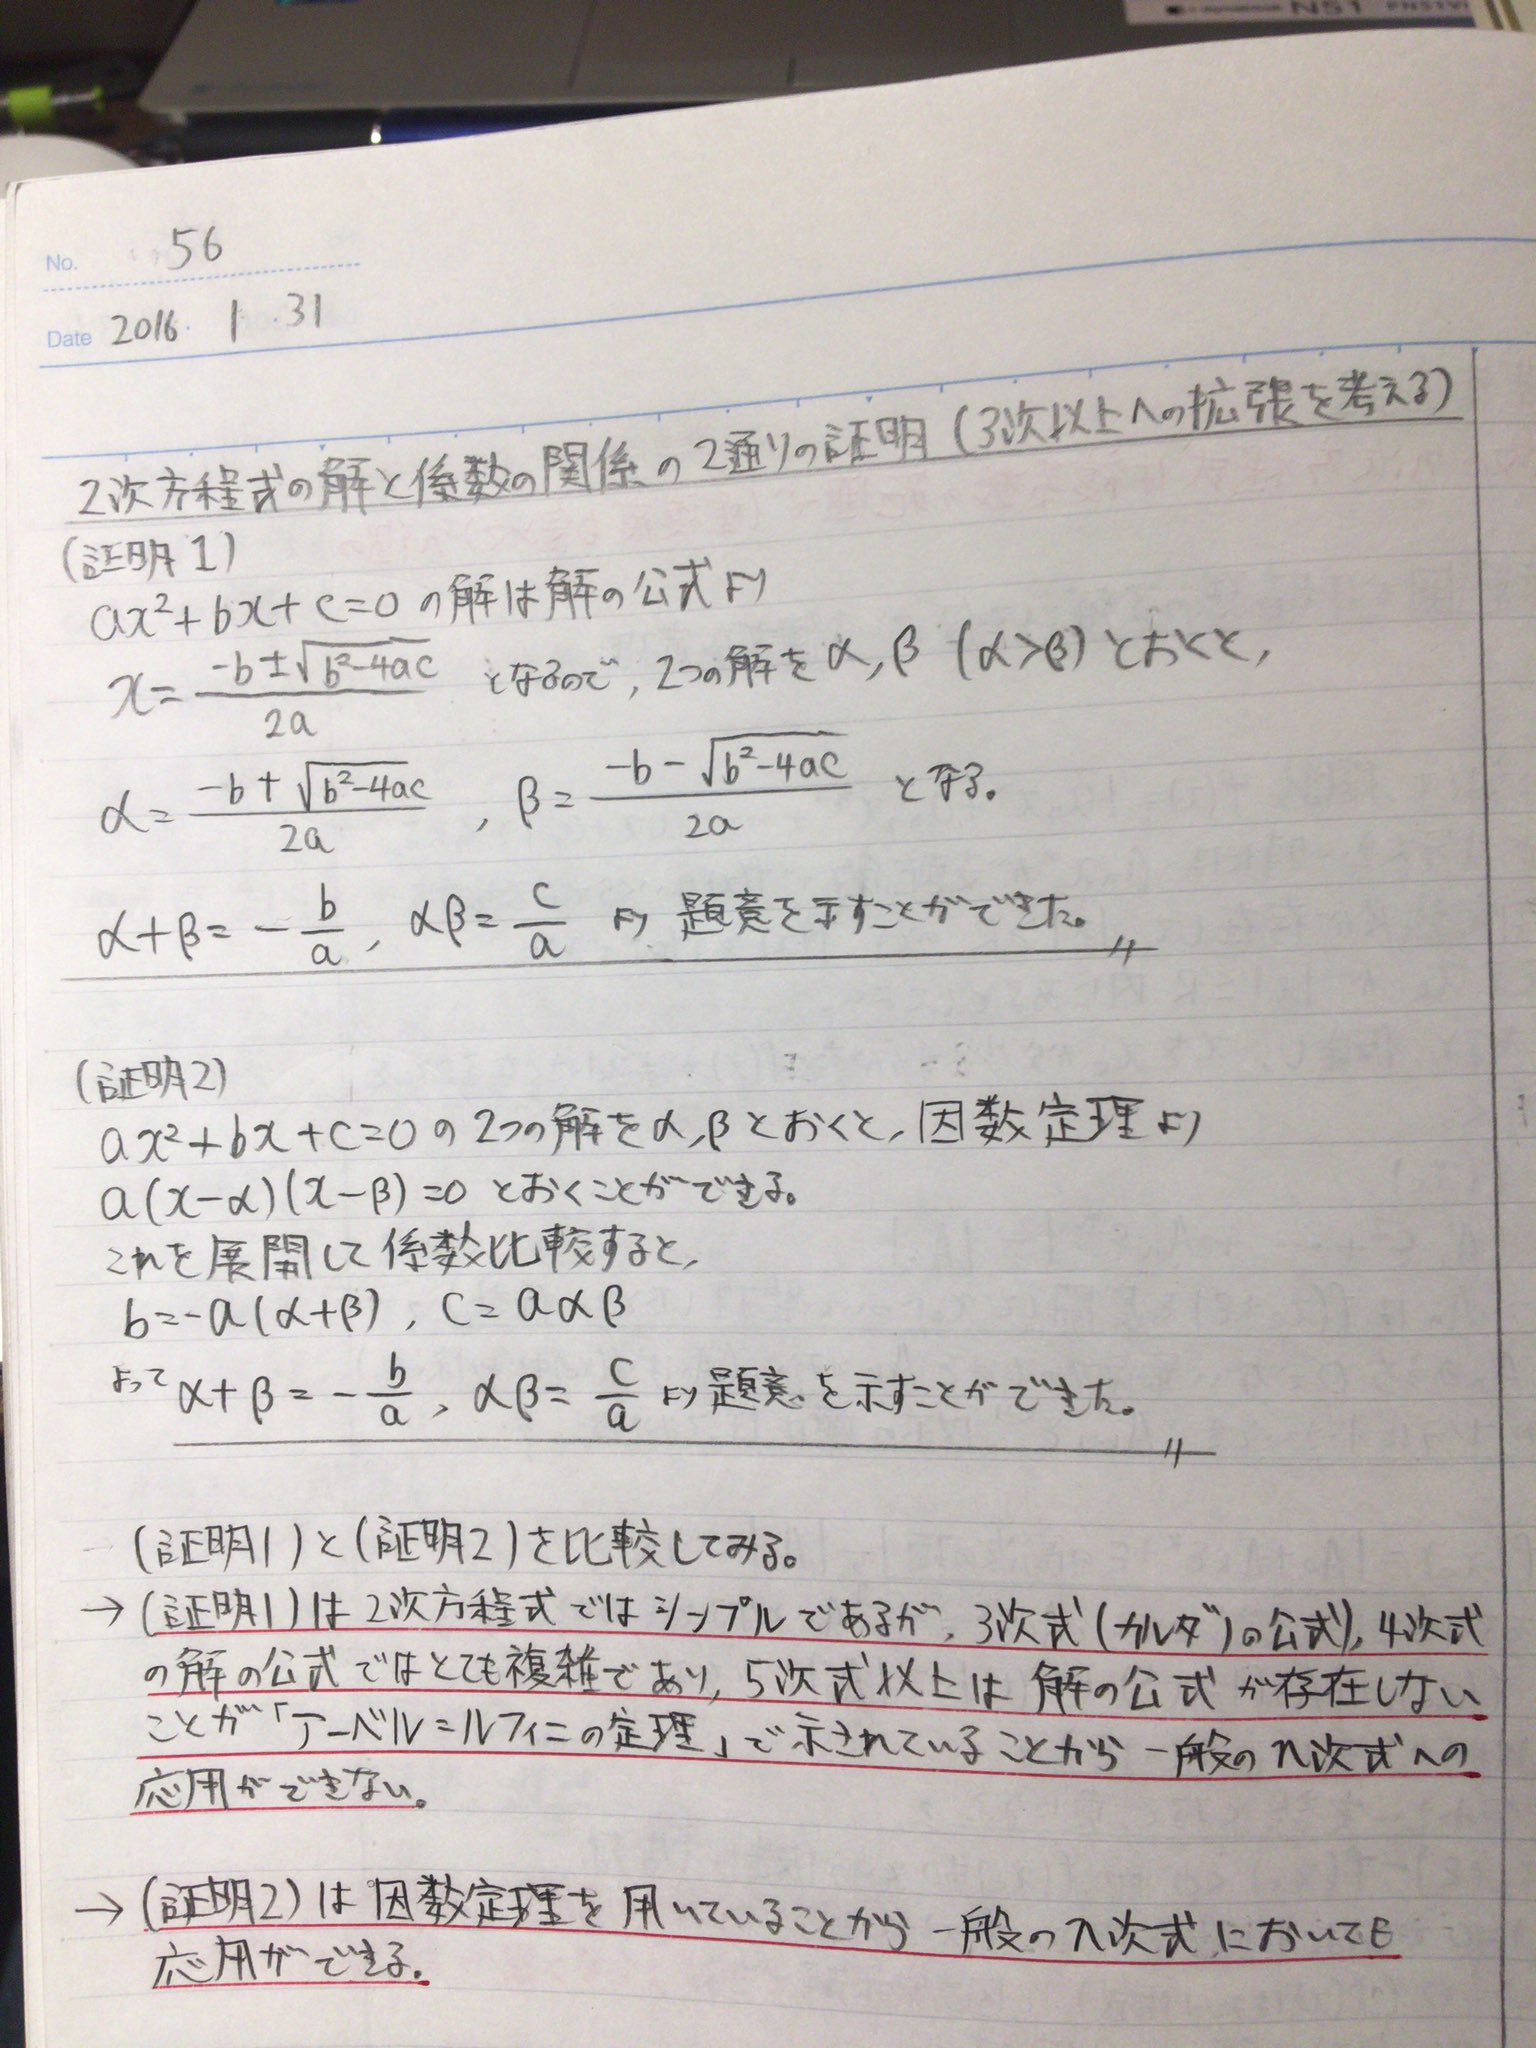 N51
No. 56
Date 2016. 1 . 31
2次方程式の解と係数の関係の2通りの証明(3次以上への拡張を考える)
(証明1)
ax²+bx+c=0の解は解の公式より
x=\frac{-b±\sqrt{b²-4ac}}{2a} となるので, 2つの解をα,β (α>β)とおくと,
α=\frac{-b+\sqrt{b²-4ac}}{2a} , β=\frac{-b-\sqrt{b²-4ac}}{2a} となる。
α+β=-\frac{b}{a}, αβ=\frac{c}{a} より 題意を示すことができた。
(証明2)
ax²+bx+c=0の2つの解をα,βとおくと,因数定理より
a(x-α)(x-β)=0 とおくことができる。
これを展開して係数比較すると,
b=-a(α+β), c=aαβ
よって α+β=-\frac{b}{a}, αβ=\frac{c}{a} より題意を示すことができた。
(証明1)と(証明2)を比較してみる。
→(証明1)は2次方程式ではシンプルであるが, 3次式(カルダノの公式), 4次式
の解の公式ではとても複雑であり, 5次式以上は解の公式が存在しない
ことが「アーベル=ルフィニの定理」で示されていることから一般のn次式への
応用ができない。
→(証明2)は因数定理を用いていることから一般のn次式においても
応用ができる。